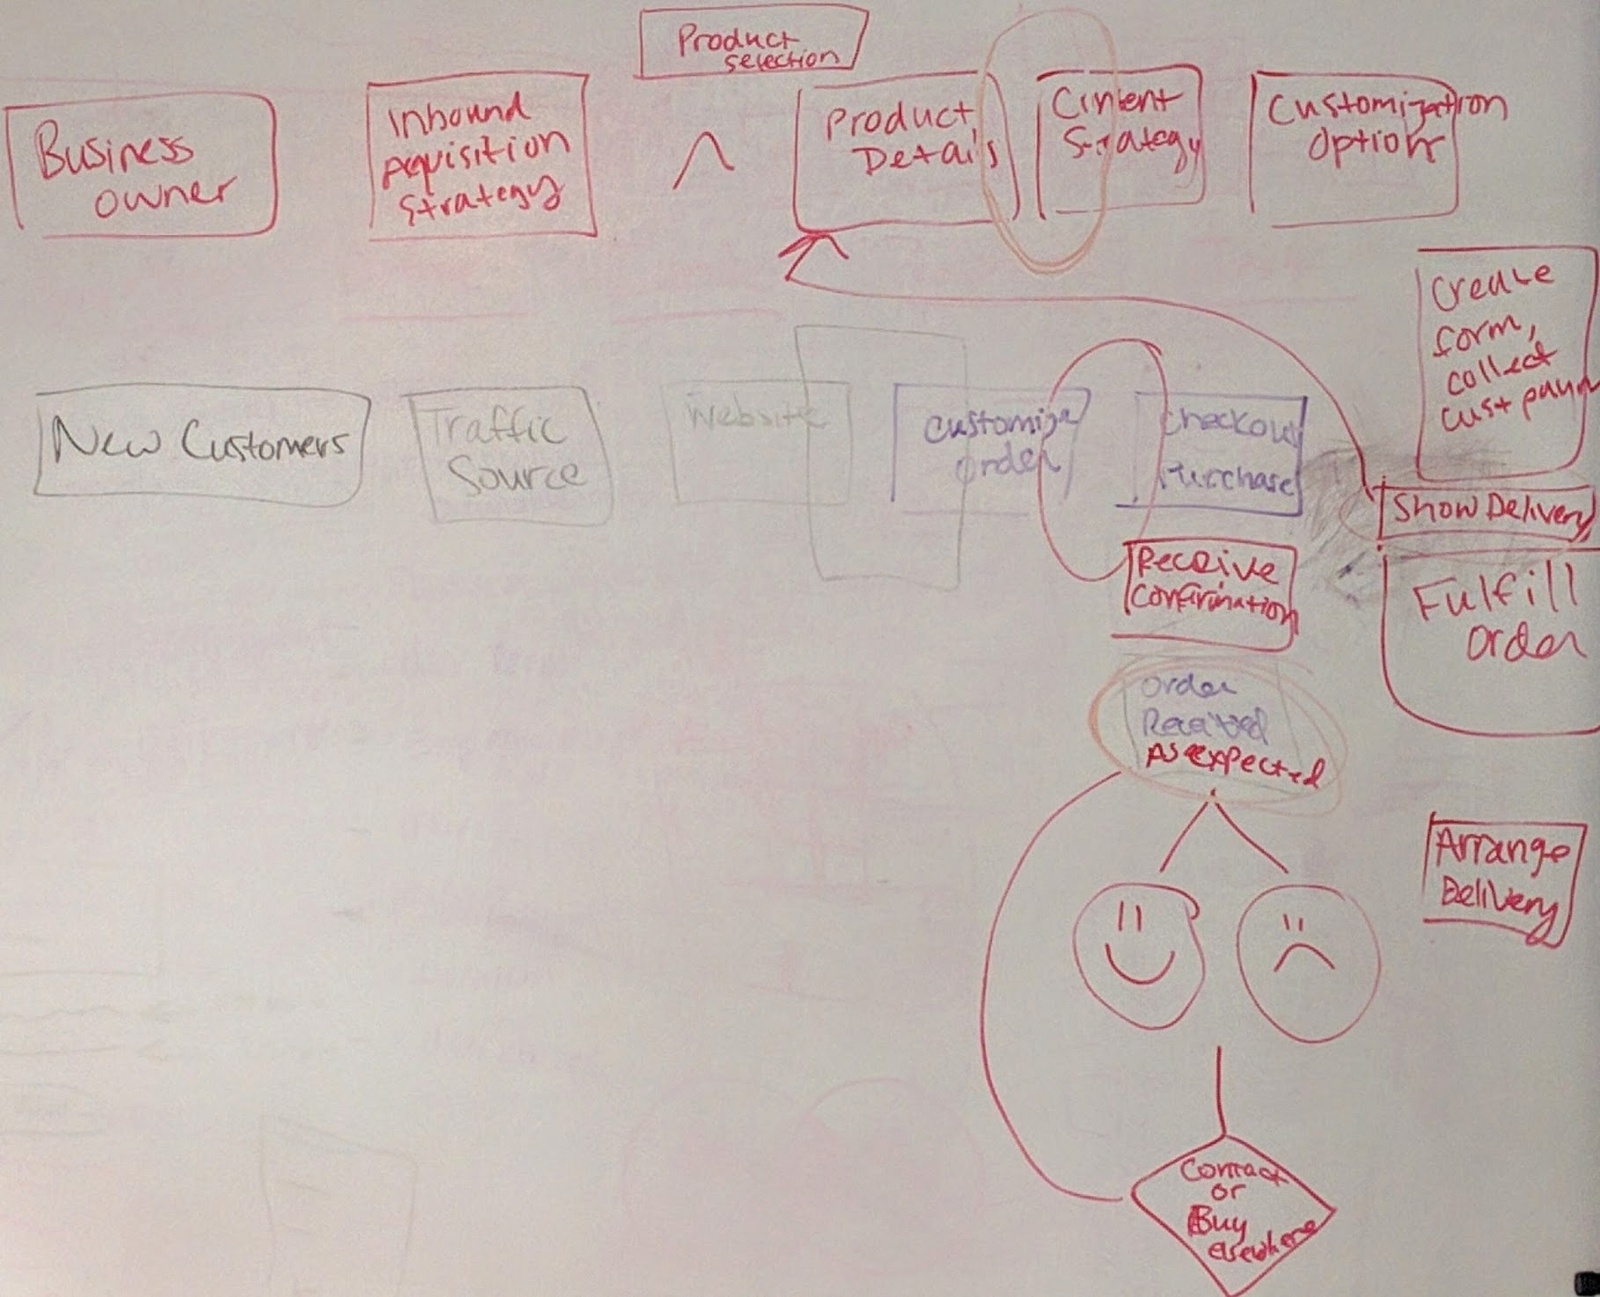 Product
selection
Business
owner
Inbound
Acquisition
Strategy
Product
Details
Content
Strategy
Customization
Option
Create
form,
collect
cust paym
New Customers
Traffic
Source
Website
Customize
order
Checkout
Purchase
Show Delivery
Receive
Confirmation
Fulfill
order
Order
Received
As expected
Arrange
Delivery
Contact
or
Buy
elsewhere